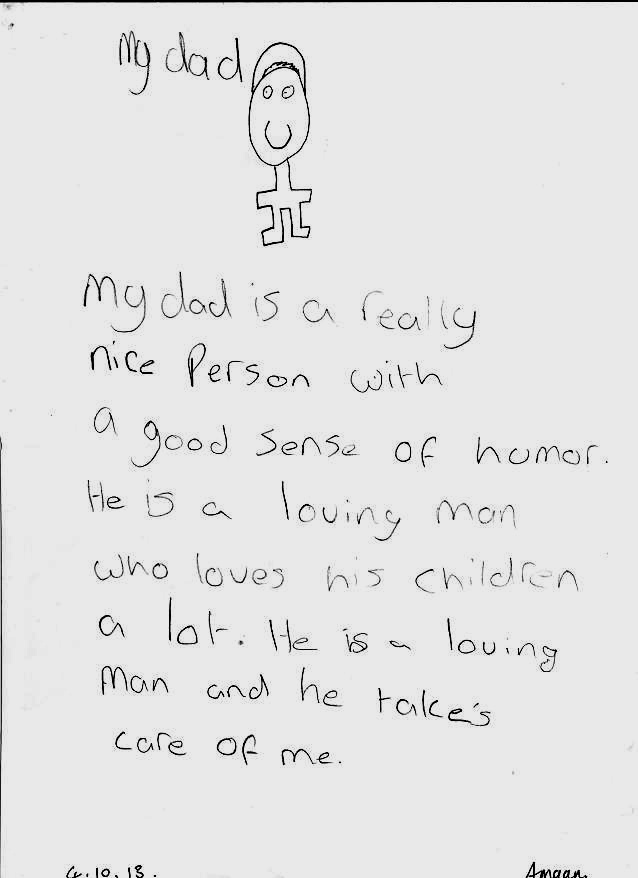 My dad
My dad is a really
nice Person with
a good sense of humor.
He is a loving man
who loves his children
a lot. He is a loving
man and he take's
care of me.
4.10.13.
Amaan